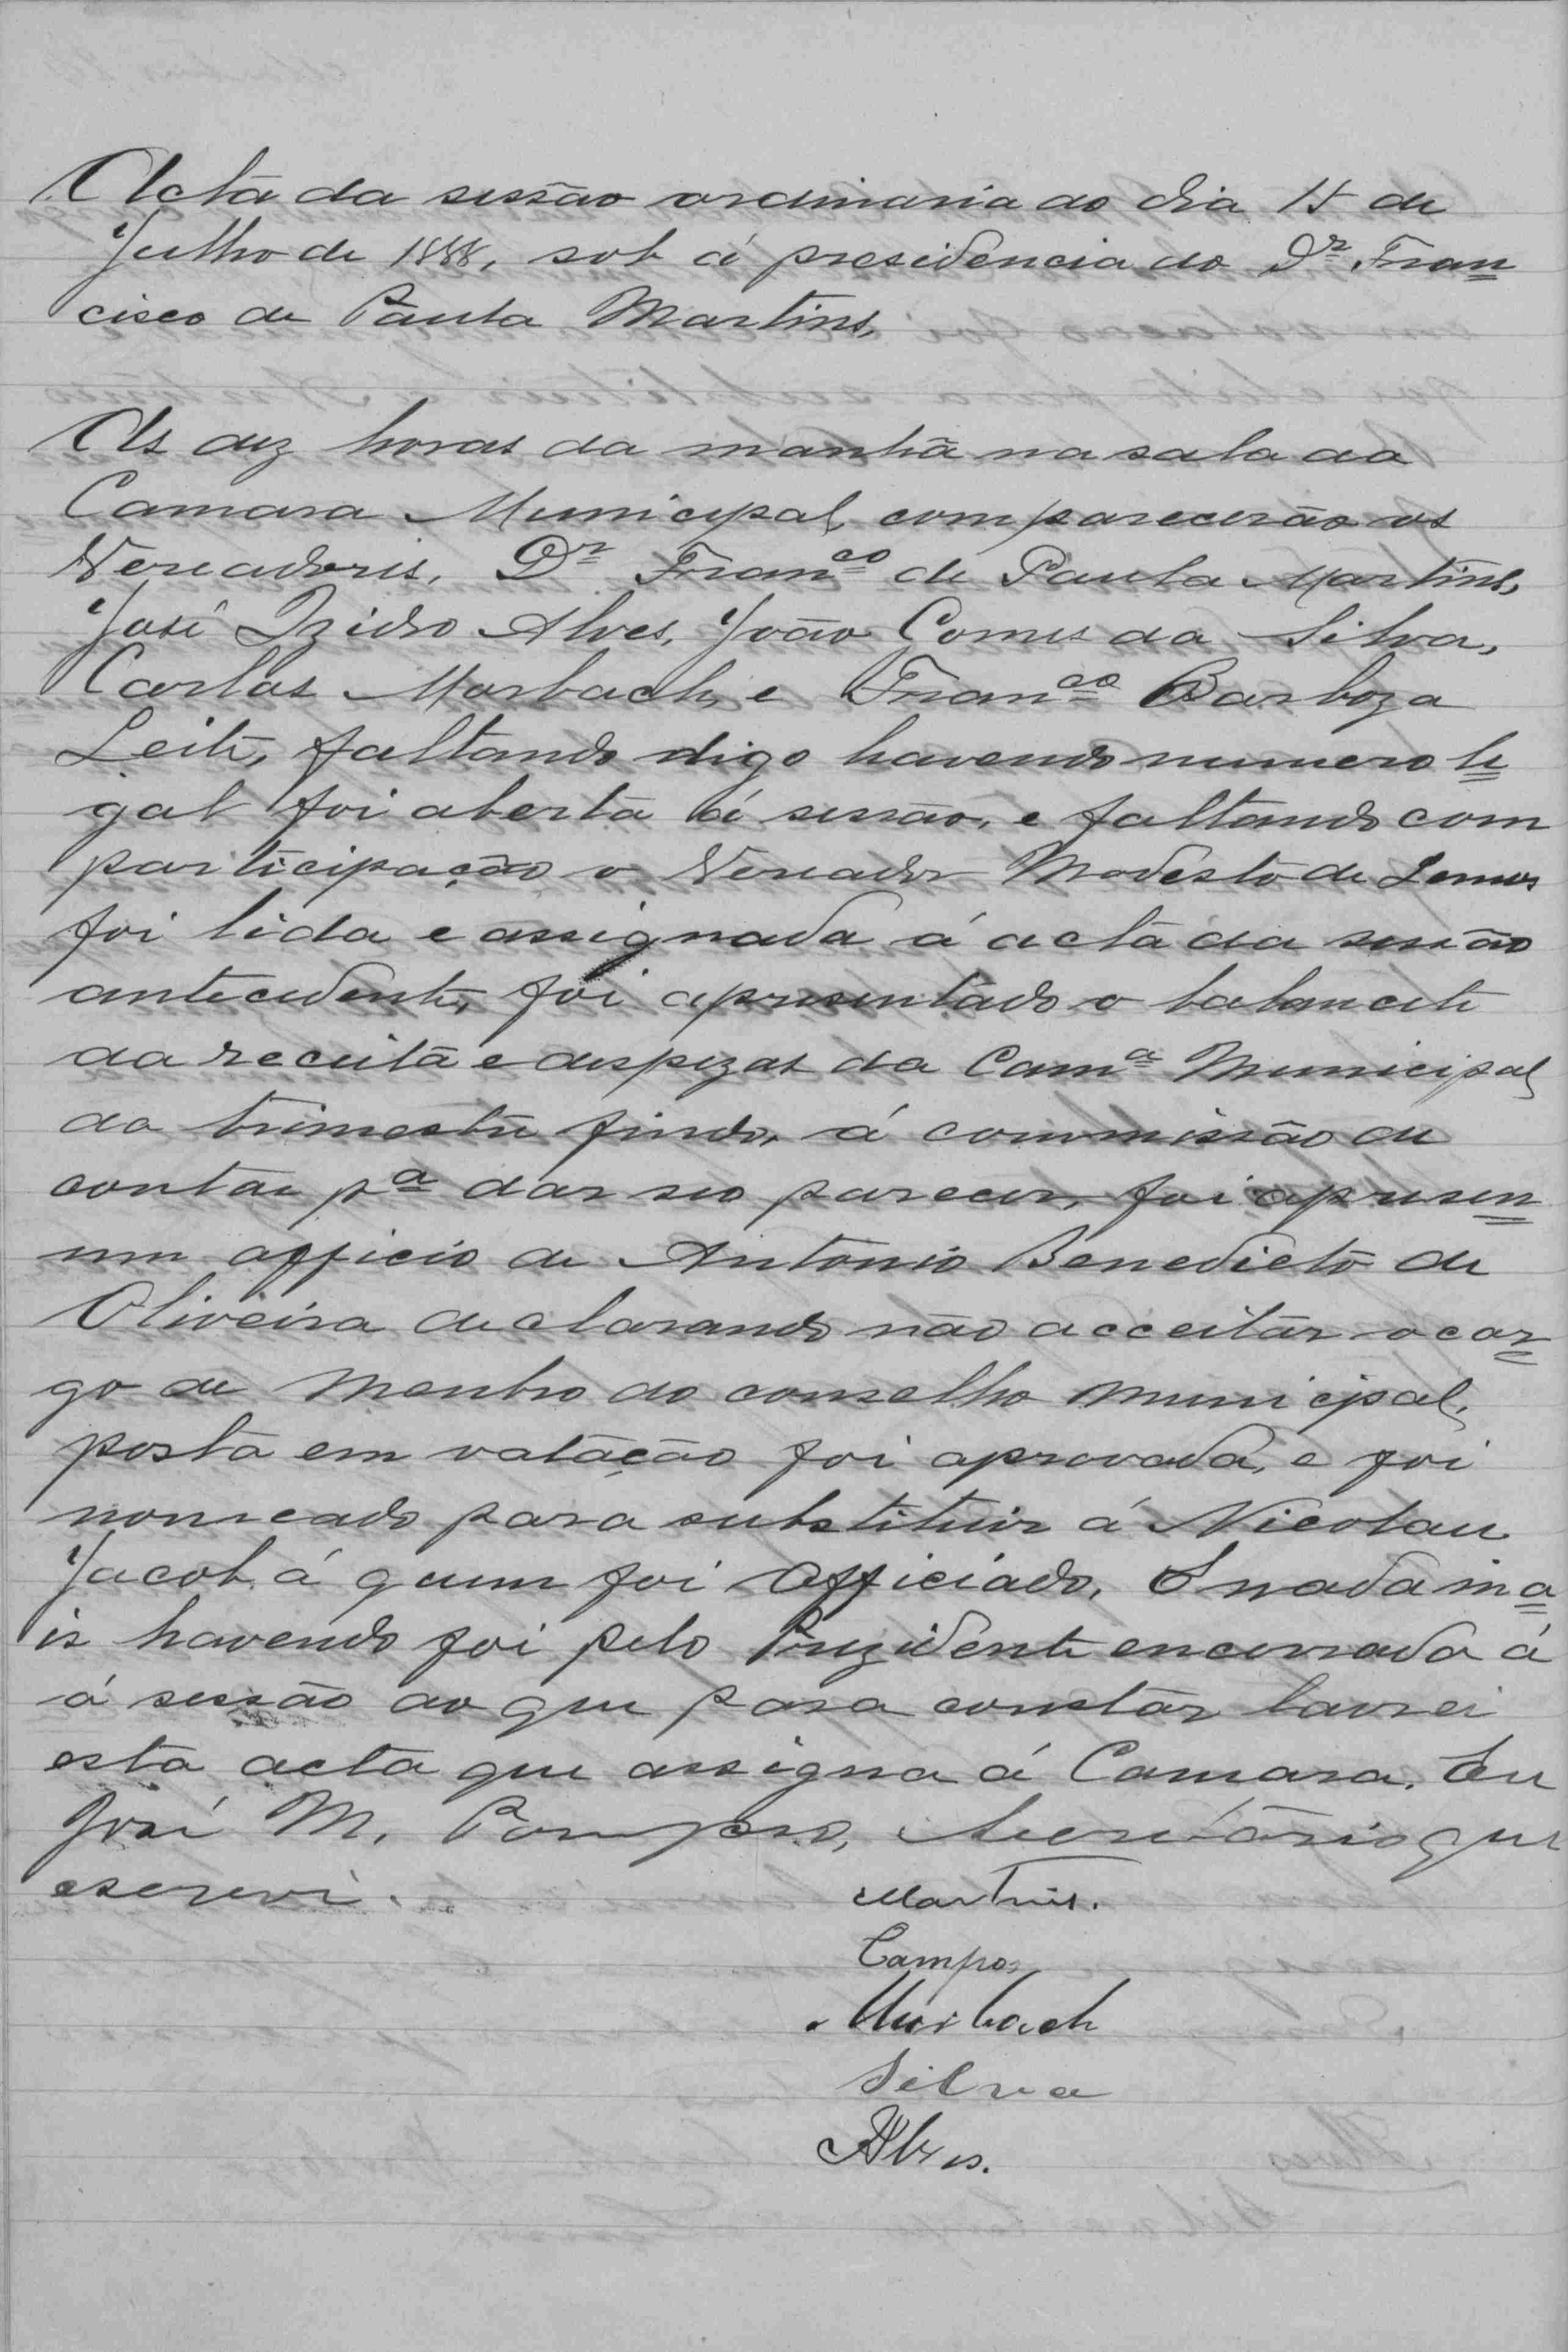 Acta da sessão ordinaria do dia 15 de
Julho de 1888, sob á presidencia do Dr Fran
cisco de Paula Martins,
As dez horas da manhã na sala da
Camara Municipal comparecerão os
Vereadores, Dr Franco de Paula Martins,
José Izidro Alves, João Comes da Silva,
Carlos Marbach, e Franco Barboza
Leite, faltando digo havendo numero le
gal foi aberta á sessão, e faltando com
participação o Vereador Modesto de Lemos
foi lida e assignada á acta da sessão
antecedente, foi apresentado o balancete
da receita e despezas da Cama Municipal
do trimestre findo, á commissão de
contas pa dar seo parecer, foi apresen
um officio de Antonio Benedicto de
Oliveira declarando não acceitar o car
go de Menbro do conselho municipal,
posta em votação foi aprovada, e foi
nomeado para substituir á Nicolau
Jacob á quem foi Officiado, E nada ma
is havendo foi pelo Prezidente encerrada á
á sessão do que para constar lavrei
esta acta que assigna á Camara. Eu
José M. Pompeo, Secretario que
escrevi.
Martins.
Campos
Murbach
Silva
Alves.